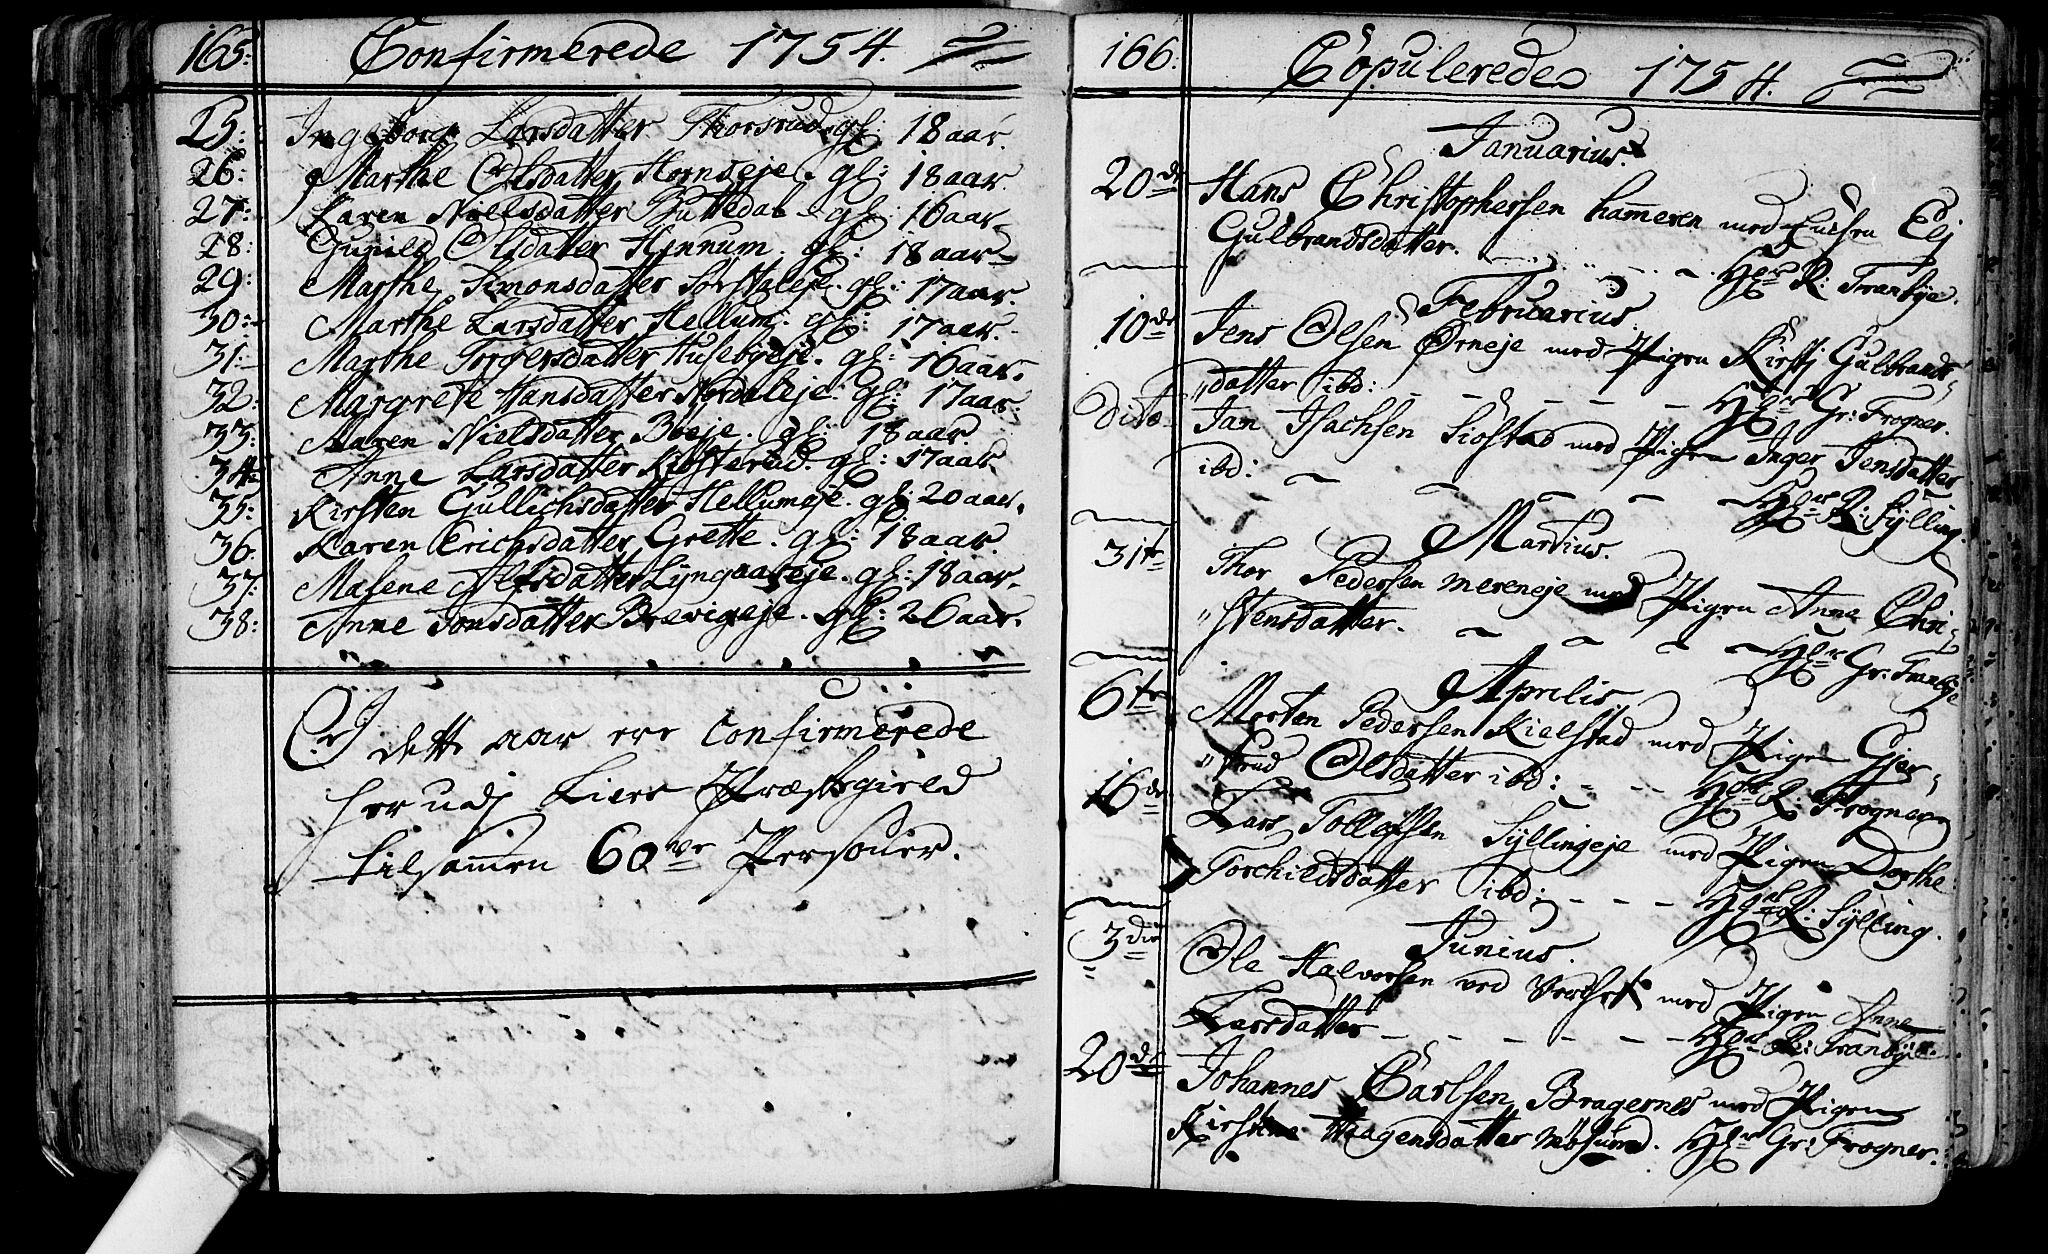 165: Confirmerede 1754.
25: Ingeborg Larsdatter Thorsrud. gl: 18 aar.
26: Marthe Olsdatter Hornseje. gl: 18 aar.
27: Karen Nielsdatter Buttedal. gl: 16 aar.
28: Gunild Olsdatter Hennum. gl: 18 aar
29: Marthe Simonsdatter gl: 17 aar.
30: Marthe Larsdatter Hellum. gl: 17 aar.
31: Marthe Torgersdatter Husebyeje. gl: 16 aar.
32: Margrete Hansdatter Nordaleje. gl: 17 aar.
33: Maren Nielsdatter Bøeje. gl: 18 aar
34: Anne Larsdatter Kiosterud. gl: 17 aar
35: Kirsten Gullichsdatter Hellumeje. gl: 20 aar.
36. Karen Erichsdatter Grette. gl: 18 aar.
37: Malene Alfsdatter Lyngaaseje. gl: 18 aar.
38: Anne Jonsdatter Brevigeje. gl: 26 aar.
I dette aar ere Confirmerede
her udj Liers Præstegield
tilsamen 60 ve Personer.
166: Copulerede 1754.
Januarius.
20 de Hans Christophersen hameren med Enchen Elj
Gulbrandsdatter. Hl R: Tranbye.
Februarius.
10 de Jens Olsen Ørneje med Pigen Kirstj Gulbrands
"datter ibd: Hl Gr: Frogner.
dito Jan Isachsen Siøstad med Pigen Inger Jensdatter
ibd: Hl R: Sylling.
Martius.
31 te Thor Pedersen mereneje med Pigen Anne Chri
"stensdatter. Hl Gr: Tranbye
Aprilis
6 te Morten Pedersen Kielstad med Pigen Gjer
"trud Olsdatter ibd: Hl R: Frogner
16 de Lars Tollefsen Syllingeje med Pigen Dorthe
Torchildsdatter ibd: Hl R: Sylling.
Junius.
3 die Ole Halvorsen ved med Pigen Anne
Larsdatter Hl R: Tranbye.
20 de Johannes Carlsen Bragernes med Pigen
Kirstine Hagensdatter Hl Gr: Frogner.